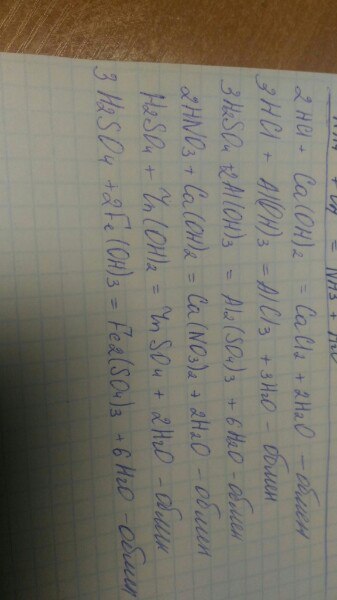 2HCl + Ca(OH)2 = CaCl2 + 2H2O - обмен
3HCl + Al(OH)3 = AlCl3 + 3H2O - обмен
3H2SO4 + 2Al(OH)3 = Al2(SO4)3 + 6H2O - обмен
2HNO3 + Ca(OH)2 = Ca(NO3)2 + 2H2O - обмен
H2SO4 + Zn(OH)2 = ZnSO4 + 2H2O - обмен
3H2SO4 + 2Fe(OH)3 = Fe2(SO4)3 + 6H2O - обмен